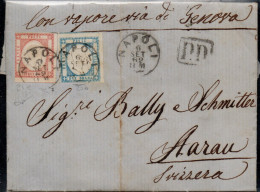 Con vapore via di Genova
NAPOLI
NAPOLI
NAPOLI
P.D.
Sig.ri Bally & Schmitter
Aarau
Svizzera